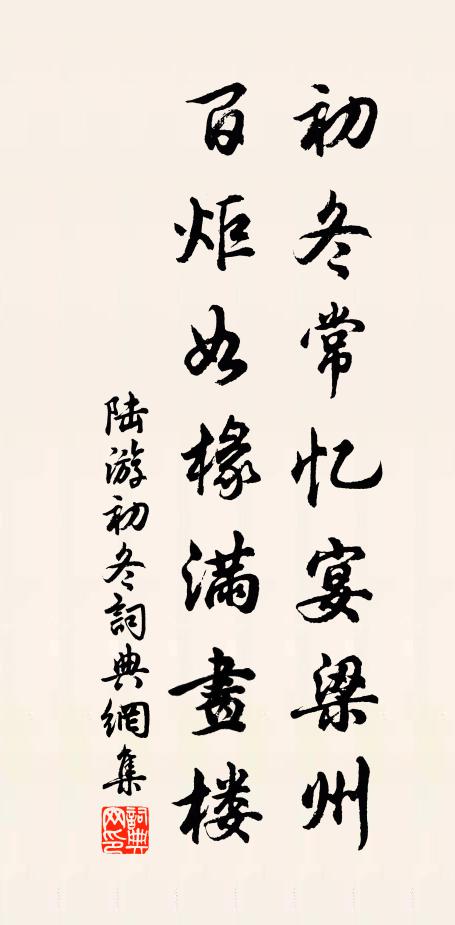 初冬常忆宴梁州
百炬如椽满畫楼
陆游初冬詞典網集
詞典网印